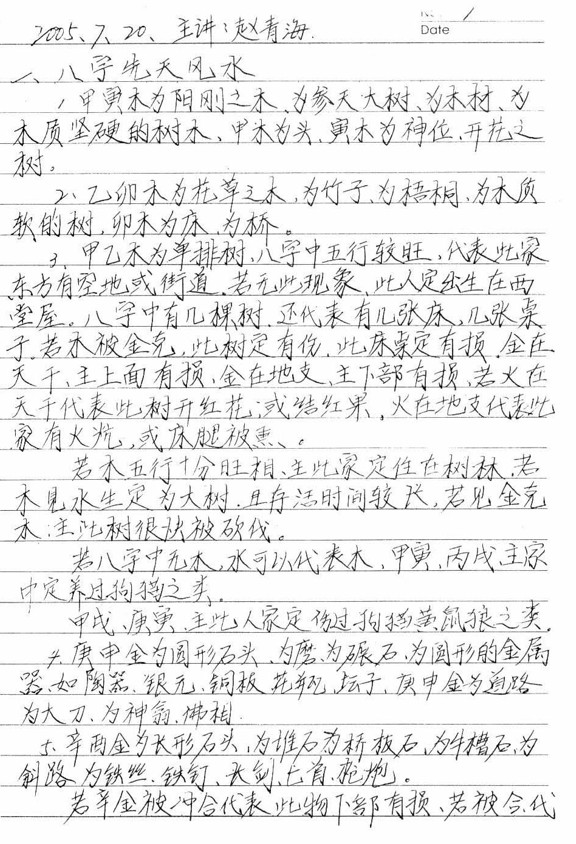 No. 1
Date
2005.7.20、主讲:赵青海.
一、八字先天风水
1、甲寅木为阳刚之木、为参天大树、为木材、为
木质坚硬的树木、甲木为头、寅木为神位、开花之
树。
2、乙卯木为花草之木、为竹子、为梧桐、为木质
软的树、卯木为床、为桥。
3、甲乙木为单排树、八字中五行较旺、代表此家
东方有空地或街道、若无此现象、此人定出生在西
堂屋。八字中有几棵树、还代表有几张床、几张桌
子、若木被金克、此树定有伤、此床桌定有损、金在
天干、主上面有损、金在地支、主下部有损、若火在
天干代表此树开红花;或结红果、火在地支代表此
家有火炕、或床腿被熏、。
若木五行十分旺相、主此家定住在树林、若
木见水生定为大树、且存活时间较长、若见金克
木:主此树很快被砍伐。
若八字中无木、水可以代表木、甲寅、丙戌主家
中定养过狗猫之类.
甲戌、庚寅、主此人家定伤过狗猫黄鼠狼之类.
4、庚申金为圆形石头、为磨、为碾石、为圆形的金属
器、如陶器、银元、铜板、花瓶、坛子、庚申金为道路
为大刀、为神翁、佛相.
5、辛酉金为长形石头、为堆石为桥板石、为牛槽石、为
斜路、为铁丝、铁钉、长剑、匕首、枪炮。
若辛金被冲合代表此物下部有损、若被合、代